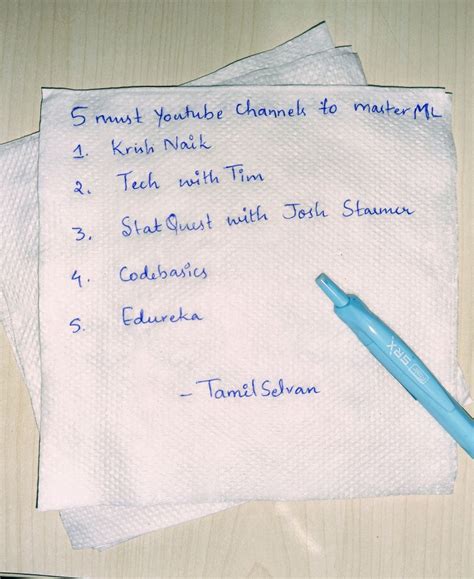 5 must Youtube Channels to master ML
1. Krish Naik
2. Tech with Tim
3. StatQuest with Josh Starmer
4. Codebasics
5. Edureka
- TamilSelvan
SRX